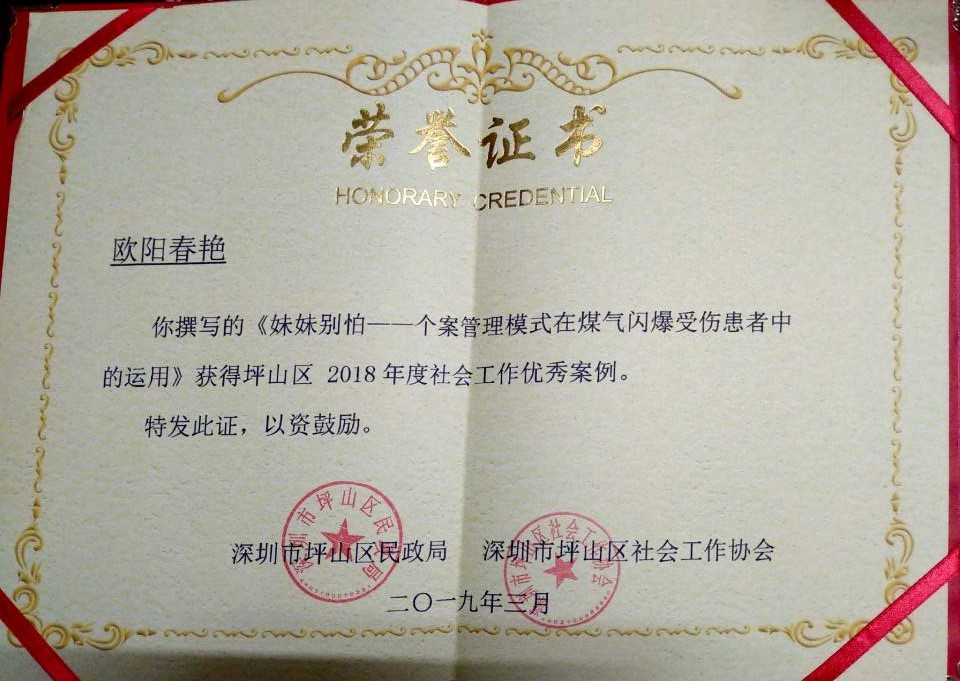 荣誉证书
HONORARY CREDENTIAL
欧阳春艳
你撰写的《妹妹别怕——个案管理模式在煤气闪爆受伤患者中
的运用》获得坪山区 2018 年度社会工作优秀案例。
特发此证，以资鼓励。
深圳市坪山区民政局 深圳市坪山区社会工作协会
二〇一九年三月